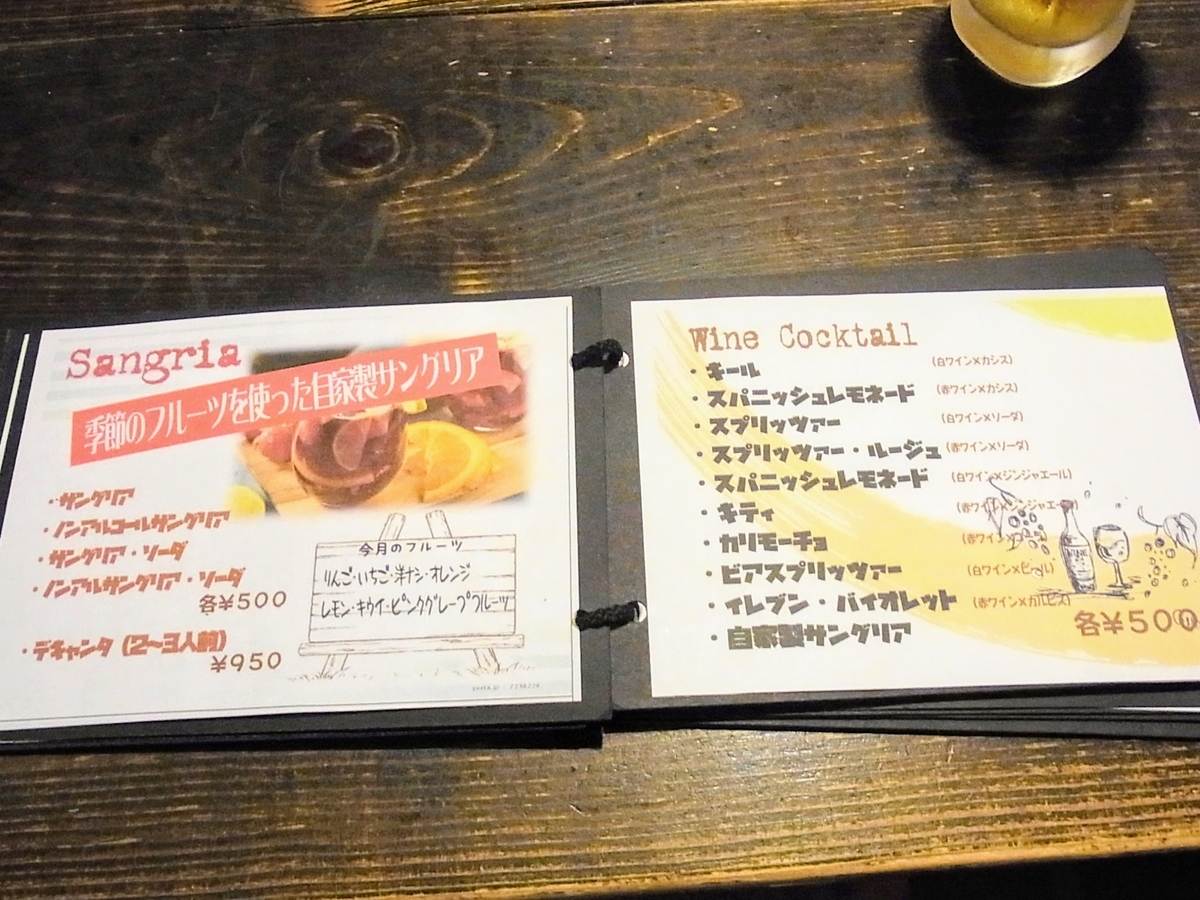 Sangria
季節のフルーツを使った自家製サングリア
・サングリア
・ノンアルコールサングリア
・サングリア・ソーダ
・ノンアルサングリア・ソーダ
各¥500
・デキャンタ (2〜3人前)
¥950
今月のフルーツ
りんご・いちご・洋ナシ・オレンジ
レモン・キウイ・ピンクグレープフルーツ
Wine Cocktail
・キール (白ワイン×カシス)
・スパニッシュレモネード (赤ワイン×カシス)
・スプリッツァー (白ワイン×ソーダ)
・スプリッツァー・ルージュ (赤ワイン×ソーダ)
・スパニッシュレモネード (白ワイン×ジンジャエール)
・キティ (赤ワイン×ジンジャエール)
・カリモーチョ (赤ワイン×コーラ)
・ビアスプリッツァー (白ワイン×ビール)
・イレブン・バイオレット (赤ワイン×カルピス)
・自家製サングリア
各¥500